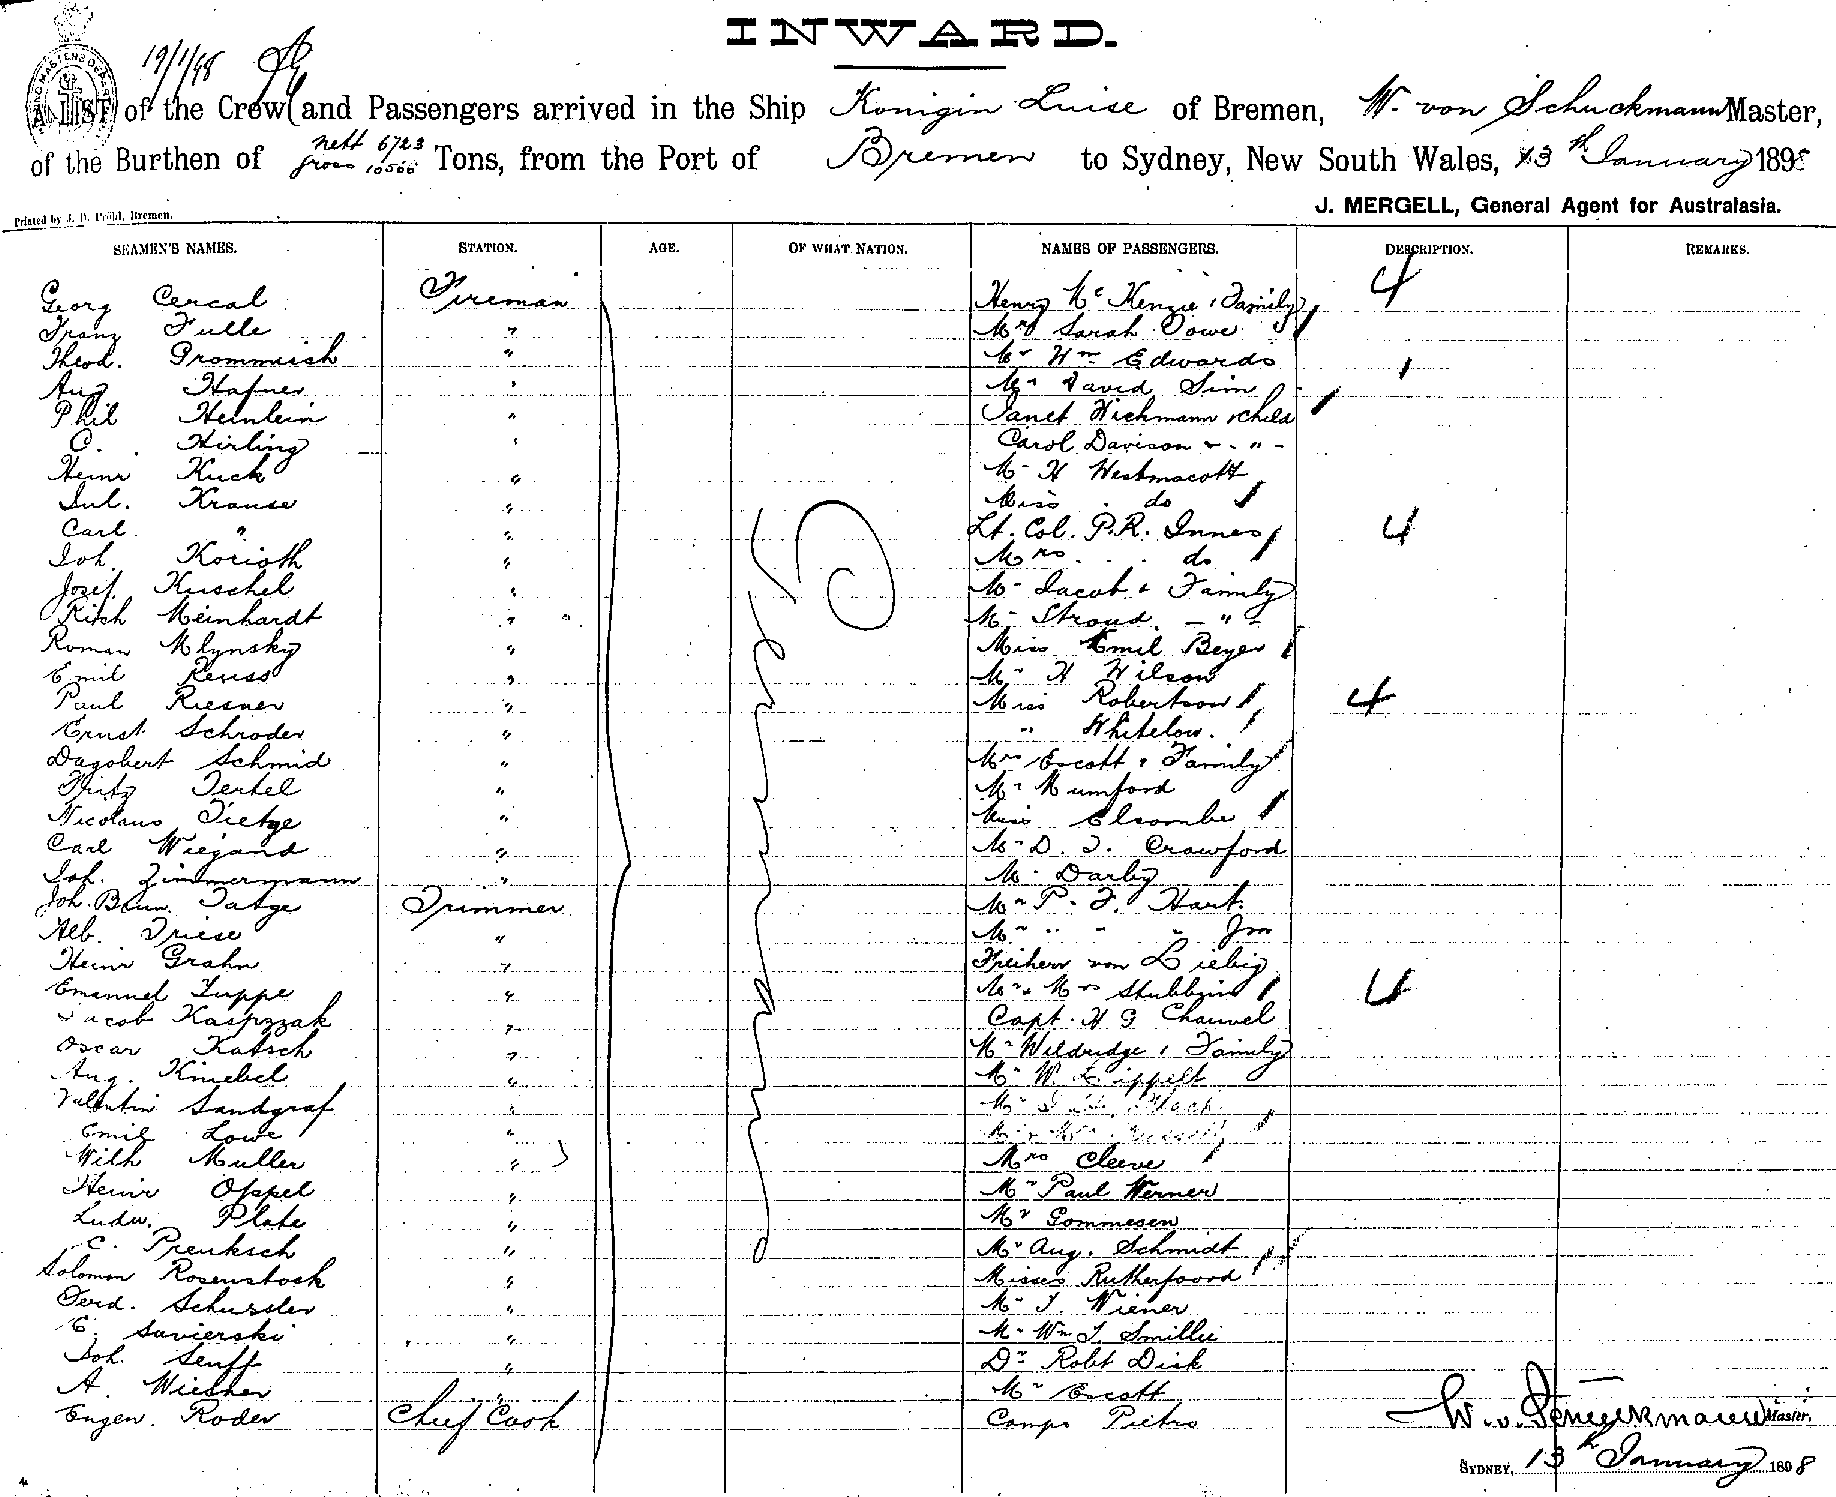 INWARD.
19/1/98
A LIST of the Crew and Passengers arrived in the Ship Konigin Luise of Bremen, W. von Schuckmann Master,
of the Burthen of nett 6723 gross 10566 Tons, from the Port of Bremen to Sydney, New South Wales, 13th January 1898
Printed by J. D. Pröhl, Bremen.
J. MERGELL, General Agent for Australasia.
SEAMEN'S NAMES. STATION. AGE. OF WHAT NATION. NAMES OF PASSENGERS. DESCRIPTION. REMARKS.
Georg Cercal Fireman Henry McKenzie & Family 4
Franz Fulle " Mrs Sarah Dowe
Theod. " Mr Wm Edwards
Aug Hafner " Mr David Sim
Phil Heinlein " Janet Wichmann & child
C. Hirling " Carol Davison - " -
Heinr Kuck " Mr H Westmacott
Jul. Krause " Miss do
Carl " " Lt. Col. P.R. Innes 4
Joh. Korioth " Mrs do
Josef. Kuschel " Mr Jacob & Family
Rich Meinhardt " Mr Stroud - " -
Roman Mlynsky " Miss Emil Beyer
Emil Reuss " Mr H Wilson
Paul Riesner " Miss Robertson 4
Ernst Schroder " " Whitelow.
Dagobert Schmid " Mrs Escott & Family
Fritz Tertel " Mr Mumford
Nicolaus Tietge " Miss Elcombe
Carl Wiegand " Mr D. T. Crawford
Joh. Zimmermann " Mr Darby
Joh. Tatge Trimmer Mr P. F. Hart.
Alb. Driese " Mr " " Jnr
Heinr Grahn " Freiherr von Liebig
Emanuel Juppe " Mr & Mrs Stubbin 4
Jacob Kasprzak " Capt. H G Chauvel
Oscar Katsch " Mr Wildridge & Family
Aug. Kniebel " Mr W. Lippelt
Valentin Landgraf " Mr
Emil Lowe "
Wilh Muller " Mrs Cleeve
Heinr Oppel " Mr Paul Werner
Ludw. Plate " Mr Gommesen
C. Preuksch " Mr Aug. Schmidt
Solomon Rosenstock " Misses Rutherfoord
Ferd. Schussler " Mr J. Wiener
E. Savierski " Mr Wm J. Smillie
Joh. Senff " Dr Robt Dick
A. Wiesner " Mr Escott
Eugen. Roder Chief Cook Campo Pietro
W. v. Schuckmann Master.
SYDNEY, 13th January 1898